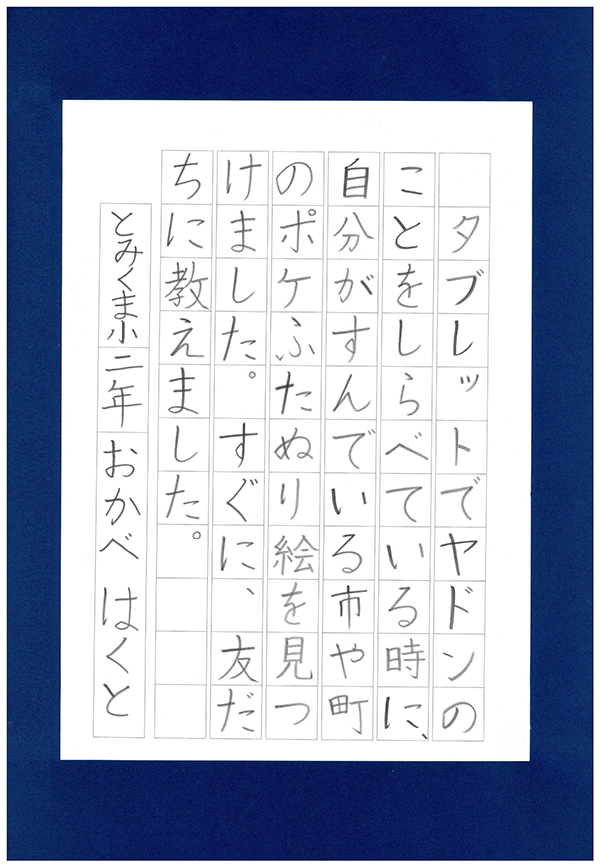 タブレットでヤドンの
ことをしらべている時に、
自分がすんでいる市や町
のポケふたぬり絵を見つ
けました。すぐに、友だ
ちに教えました。
とみくま小二年おかべはくと